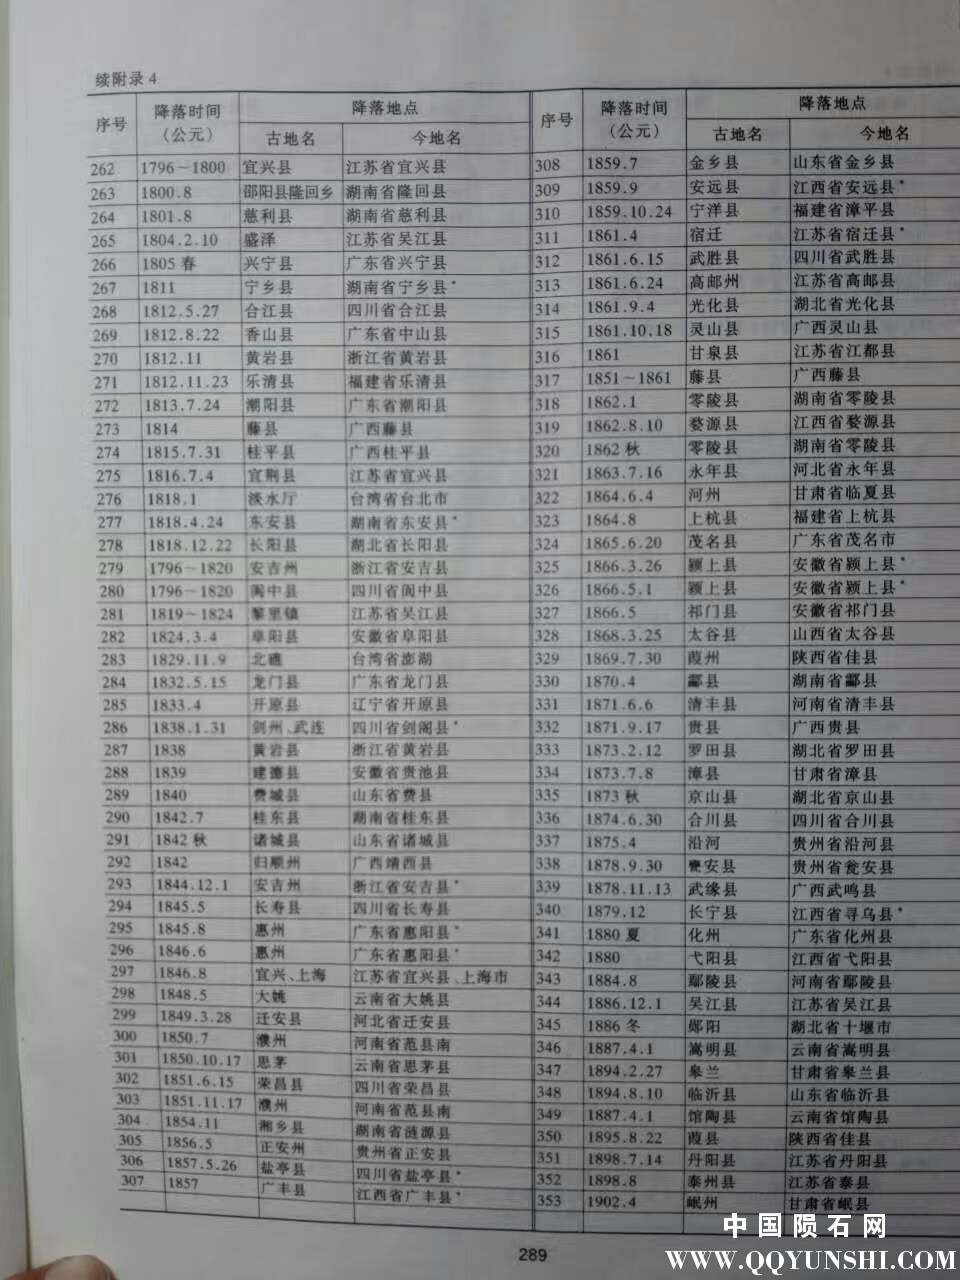 续附录4
序号 降落时间(公元) 降落地点 古地名 今地名
262 1796～1800 宜兴县 江苏省宜兴县
263 1800.8 邵阳县隆回乡 湖南省隆回县
264 1801.8 慈利县 湖南省慈利县
265 1804.2.10 盛泽 江苏省吴江县
266 1805春 兴宁县 广东省兴宁县
267 1811 宁乡县 湖南省宁乡县*
268 1812.5.27 合江县 四川省合江县
269 1812.8.22 香山县 广东省中山县
270 1812.11 黄岩县 浙江省黄岩县
271 1812.11.23 乐清县 福建省乐清县
272 1813.7.24 潮阳县 广东省潮阳县
273 1814 藤县 广西藤县
274 1815.7.31 桂平县 广西桂平县
275 1816.7.4 宜荆县 江苏省宜兴县
276 1818.1 淡水厅 台湾省台北市
277 1818.4.24 东安县 湖南省东安县*
278 1818.12.22 长阳县 湖北省长阳县
279 1796～1820 安吉州 浙江省安吉县
280 1796～1820 阆中县 四川省阆中县
281 1819～1824 黎里镇 江苏省吴江县
282 1824.3.4 阜阳县 安徽省阜阳县
283 1829.11.9 北礁 台湾省澎湖
284 1832.5.15 龙门县 广东省龙门县
285 1833.4 开原县 辽宁省开原县
286 1838.1.31 剑州、武连 四川省剑阁县*
287 1838 黄岩县 浙江省黄岩县
288 1839 建德县 安徽省贵池县
289 1840 费城县 山东省费县
290 1842.7 桂东县 湖南省桂东县
291 1842秋 诸城县 山东省诸城县
292 1842 归顺州 广西靖西县
293 1844.12.1 安吉州 浙江省安吉县*
294 1845.5 长寿县 四川省长寿县
295 1845.8 惠州 广东省惠阳县*
296 1846.6 惠州 广东省惠阳县*
297 1846.8 宜兴、上海 江苏省宜兴县、上海市
298 1848.5 大姚 云南省大姚县
299 1849.3.28 迁安县 河北省迁安县
300 1850.7 濮州 河南省范县南
301 1850.10.17 思茅 云南省思茅县
302 1851.6.15 荣昌县 四川省荣昌县
303 1851.11.17 濮州 河南省范县南
304 1854.11 湘乡县 湖南省涟源县
305 1856.5 正安州 贵州省正安县
306 1857.5.26 盐亭县 四川省盐亭县*
307 1857 广丰县 江西省广丰县*
序号 降落时间(公元) 降落地点 古地名 今地名
308 1859.7 金乡县 山东省金乡县
309 1859.9 安远县 江西省安远县*
310 1859.10.24 宁洋县 福建省漳平县
311 1861.4 宿迁 江苏省宿迁县*
312 1861.6.15 武胜县 四川省武胜县
313 1861.6.24 高邮州 江苏省高邮县
314 1861.9.4 光化县 湖北省光化县
315 1861.10.18 灵山县 广西灵山县
316 1861 甘泉县 江苏省江都县
317 1851～1861 藤县 广西藤县
318 1862.1 零陵县 湖南省零陵县
319 1862.8.10 婺源县 江西省婺源县
320 1862秋 零陵县 湖南省零陵县
321 1863.7.16 永年县 河北省永年县
322 1864.6.4 河州 甘肃省临夏县
323 1864.8 上杭县 福建省上杭县
324 1865.6.20 茂名县 广东省茂名市
325 1866.3.26 颍上县 安徽省颍上县*
326 1866.5.1 颍上县 安徽省颍上县*
327 1866.5 祁门县 安徽省祁门县
328 1868.3.25 太谷县 山西省太谷县
329 1869.7.30 葭州 陕西省佳县
330 1870.4 酃县 湖南省酃县
331 1871.6.6 清丰县 河南省清丰县
332 1871.9.17 贵县 广西贵县
333 1873.2.12 罗田县 湖北省罗田县
334 1873.7.8 漳县 甘肃省漳县
335 1873秋 京山县 湖北省京山县
336 1874.6.30 合川县 四川省合川县
337 1875.4 沿河 贵州省沿河县
338 1878.9.30 瓮安县 贵州省瓮安县
339 1878.11.13 武缘县 广西武鸣县
340 1879.12 长宁县 江西省寻乌县*
341 1880夏 化州 广东省化州县
342 1880 弋阳县 江西省弋阳县
343 1884.8 鄢陵县 河南省鄢陵县
344 1886.12.1 吴江县 江苏省吴江县
345 1886冬 郧阳 湖北省十堰市
346 1887.4.1 嵩明县 云南省嵩明县
347 1894.2.27 皋兰 甘肃省皋兰县
348 1894.8.10 临沂县 山东省临沂县
349 1887.4.1 馆陶县 云南省馆陶县
350 1895.8.22 葭县 陕西省佳县
351 1898.7.14 丹阳县 江苏省丹阳县
352 1898.8 泰州县 江苏省泰县
353 1902.4 岷州 甘肃省岷县
289
中国陨石网
WWW.QQYUNSHI.COM